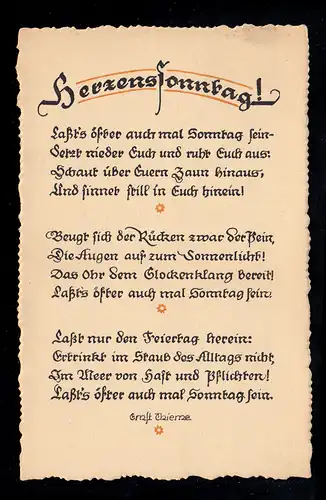 Herzenssonntag!
Laßt's öfter auch mal Sonntag sein-
Setzt nieder Euch und ruht Euch aus:
Schaut über Euern Zaun hinaus,
Und sinnet still in Euch hinein!
Beugt sich der Rücken zwar der Pein,
Die Augen auf zum Sonnenlicht!
Das Ohr dem Glockenklang bereit!
Laßt's öfter auch mal Sonntag sein.
Laßt nur den Feiertag herein:
Ertrinkt im Staub des Alltags nicht,
Im Meer von Hast und Pflichten!
Laßt's öfter auch mal Sonntag sein.
Ernst Thieme